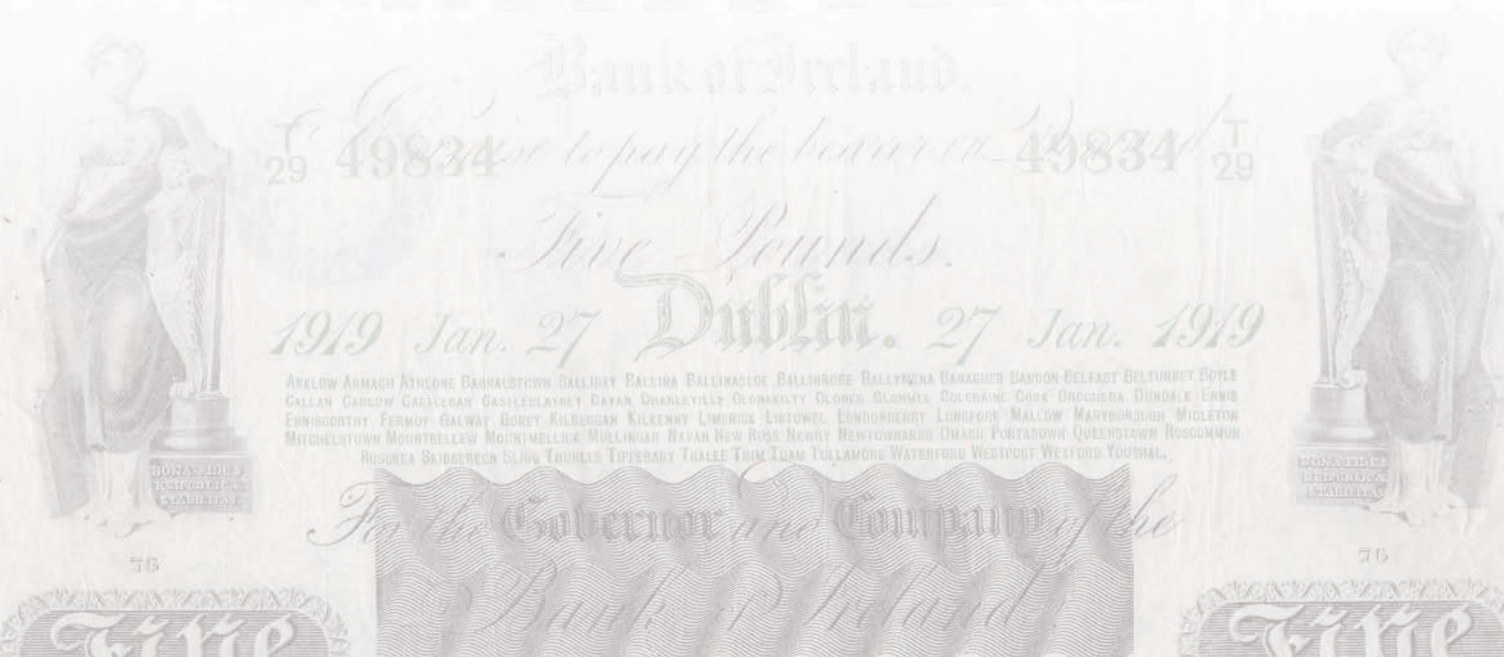 Bank of Ireland.
T
29 49834 49834 T
29
I Promise to pay the bearer on Demand
Five Pounds.
Dublin.
1919 Jan. 27 27 Jan. 1919
ARKLOW ARMACH ATHLONE BAGNALSTOWN BALLIBAY BALLINA BALLINASLOE BALLINROBE BALLYMENA BANAGHER BANDON BELFAST BELTURBET BOYLE
CALLAN CARLOW CASHEL CASTLEBLAYNEY CAVAN CHARLEVILLE CLONAKILTY CLONES CLONMEL COLERAINE CORK DROGHEDA DUNDALK ENNIS
ENNISCORTHY FERMOY GALWAY GOREY KILBEGGAN KILKENNY LIMERICK LISTOWEL LONDONDERRY LONGFORD MALLOW MARYBOROUGH MIDLETON
MITCHELSTOWN MOUNTBELLEW MOUNTMELLICK MULLINGAR NAVAN NEW ROSS NEWRY NEWTOWNARDS OMAGH PORTADOWN QUEENSTOWN ROSCOMMON
ROSCREA SKIBBEREEN SLIGO THURLES TIPPERARY TRALEE TRIM TUAM TULLAMORE WATERFORD WESTPORT WEXFORD YOUGHAL.
BONA FIDES
REIPUBLICÆ
STABILITAS
BONA FIDES
REIPUBLICÆ
STABILITAS
For the Governor and Company of the
Bank of Ireland.
76 76
Five Five